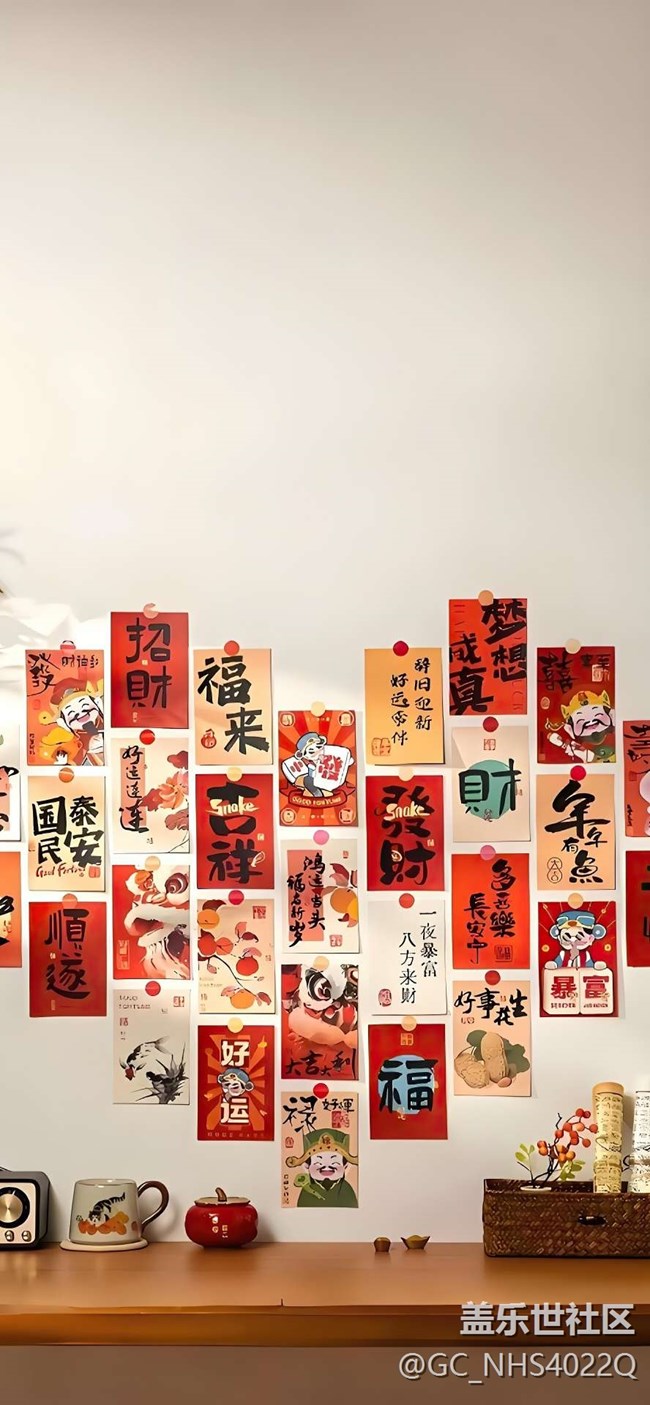 發
财神到
招
財
福
来
辞旧迎新
好运常伴
梦想
成真
好运连连
發
GOOD FORTUNE
財
国泰
民安
Good Fortune
Snake
吉
祥
鸿运当头
福启新岁
Snake
發
財
年年
有魚
順
遂
一夜暴富
八方来财
多喜樂
長安寧
暴富
大吉大利
好
运
福
好事花生
禄
好運
盖乐世社区
@GC_NHS4022Q